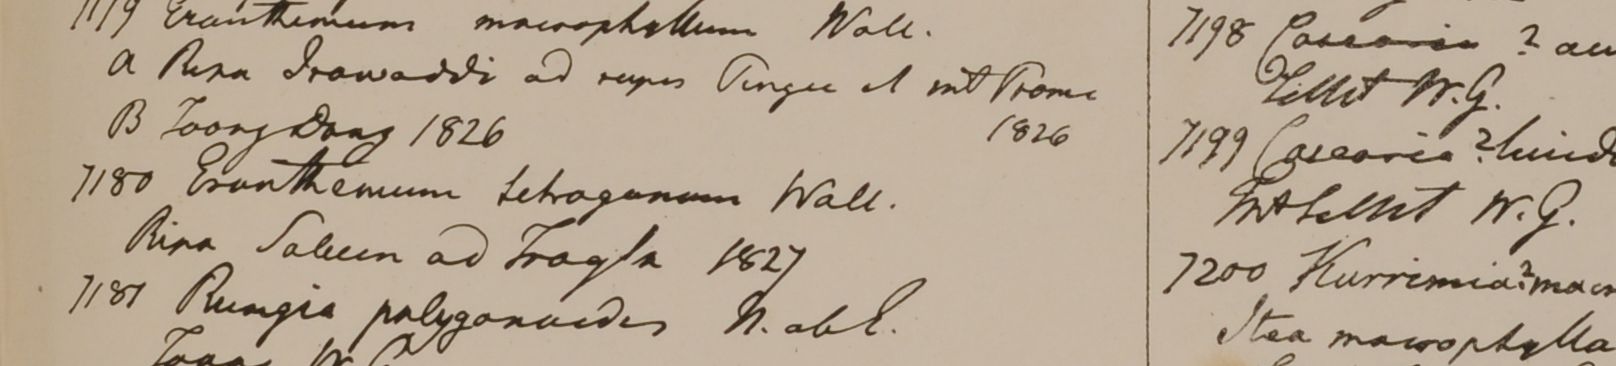 7179 Eranthemum macrophyllum Wall.
A Ripa Irawaddi ad rupes et mt Prome
1826
B Toong Dong 1826
7180 Eranthemum tetragonum Wall.
Ripa Saluen ad Trogla 1827
7181 Rungia polygonoides N. ab E.
Toong W. G
7198 Casearia ?
W. G.
7199 Casearia ?
W. G.
7200 Kurrimia? macr
Itea macrophylla